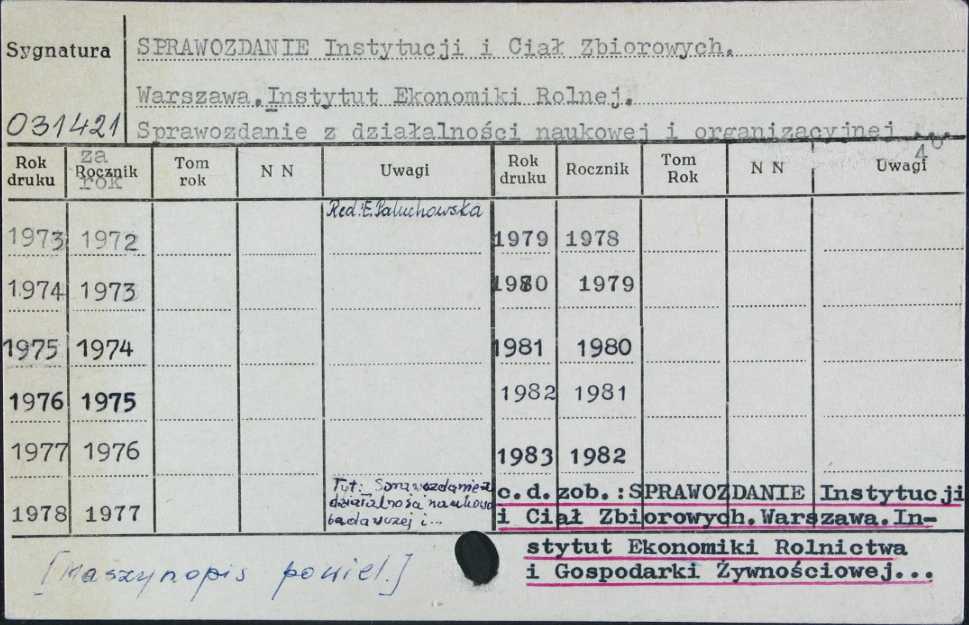 Sygnatura
SPRAWOZDANIE Instytucji i Ciał Zbiorowych.
Warszawa.Instytut Ekonomiki Rolnej.
031421
Sprawozdanie z działalności naukowej i organizacyjnej...
4°
Rok druku
za rok
Rocznik
Tom rok
N N
Uwagi
Rok druku
Rocznik
Tom Rok
N N
Uwagi
Red. E. Paluchowska
1973 1972
1979 1978
1974 1973
1980 1979
1975 1974
1981 1980
1976 1975
1982 1981
1977 1976
1983 1982
1978 1977
Tyt: Sprawozdanie z
działalności naukowo
badawczej i...
c.d. zob.:SPRAWOZDANIE Instytucji
i Ciał Zbiorowych.Warszawa.In-
stytut Ekonomiki Rolnictwa
i Gospodarki Żywnościowej...
[Maszynopis powiel.]